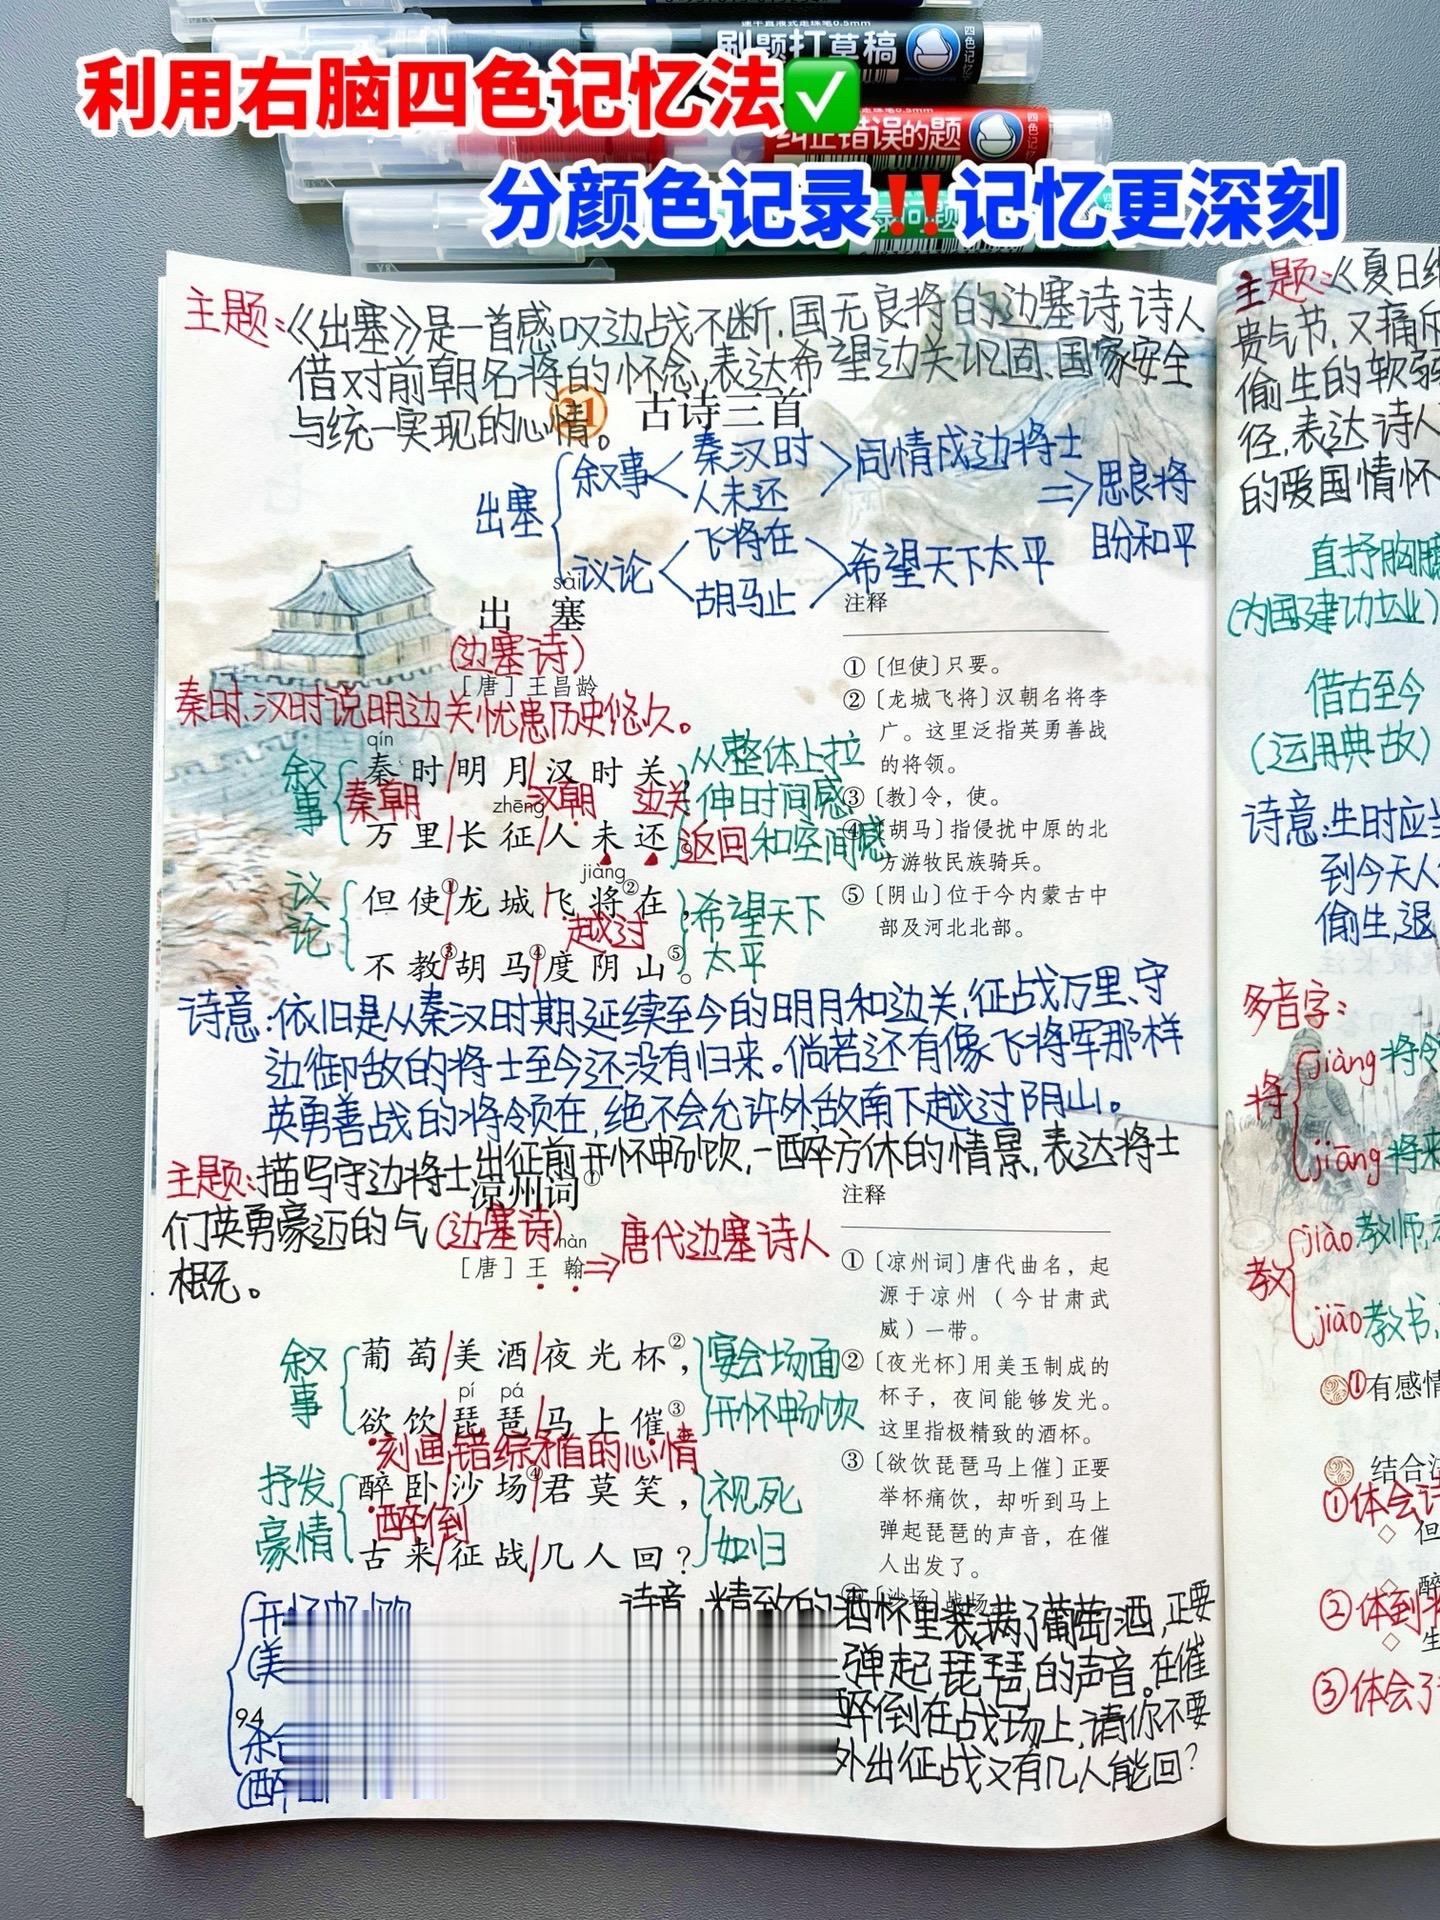 刷题打草稿
四色记忆
利用右脑四色记忆法✅
纠正错误的题
四色记忆
分颜色记录‼️记忆更深刻
主题:《出塞》是一首感叹边战不断,国无良将的边塞诗,诗人
借对前朝名将的怀念,表达希望边关巩固,国家安全
与统一实现的心情。
21 古诗三首
出塞
叙事
秦汉时
人未还
同情戍边将士
议论
飞将在
胡马止
希望天下太平
⇒思良将
盼和平
sài
出 塞
(边塞诗)
[唐] 王昌龄
秦时,汉时说明边关忧患历史悠久。
qín
叙事
秦时/明月/汉时关,
秦朝 汉朝 边关
zhēng
万里/长征/人未还。
返回
从整体上拉
伸时间感
和空间感
jiàng
议论
但使①/龙城/飞将②在,
越过
不教③/胡马④/度阴山⑤。
希望天下
太平
注释
①〔但使〕只要。
②〔龙城飞将〕汉朝名将李
广。这里泛指英勇善战
的将领。
③〔教〕令,使。
④〔胡马〕指侵扰中原的北
方游牧民族骑兵。
⑤〔阴山〕位于今内蒙古中
部及河北北部。
诗意:依旧是从秦汉时期延续至今的明月和边关,征战万里、守
边御敌的将士至今还没有归来。倘若还有像飞将军那样
英勇善战的将领在,绝不会允许外敌南下越过阴山。
主题:描写守边将士出征前开怀畅饮,一醉方休的情景,表达将士
们英勇豪迈的气
概。
凉州词①
(边塞诗)
hàn
[唐] 王 翰
⇒唐代边塞诗人
叙事
葡萄/美酒/夜光杯②,
pí pá
欲饮/琵琶/马上催③。
宴会场面
开怀畅饮
刻画错综矛盾的心情
抒发
豪情
醉卧/沙场④/君莫笑,
醉倒
古来/征战/几人回?
视死
如归
注释
①〔凉州词〕唐代曲名,起
源于凉州(今甘肃武
威)一带。
②〔夜光杯〕用美玉制成的
杯子,夜间能够发光。
这里指极精致的酒杯。
③〔欲饮琵琶马上催〕正要
举杯痛饮,却听到马上
弹起琵琶的声音,在催
人出发了。
④〔沙场〕战场。
开怀畅饮
(美
94
(醉
诗意:精致的酒杯里装满了葡萄酒,正要
弹起琵琶的声音。在催
醉倒在战场上,请你不要
外出征战又有几人能回?
主题:《夏日绝
贵气节,又痛斥
偷生的软弱
径,表达诗人
的爱国情怀
直抒胸臆
(为国建功立业)
借古至今
(运用典故)
诗意:生时应当
到今天人
偷生,退
多音字:
将
jiàng 将令
jiāng 将来
教
jiào 教师,
jiāo 教书,
①有感情
结合注
①体会诗
◇ 但
②体到
◇ 生
③体会了